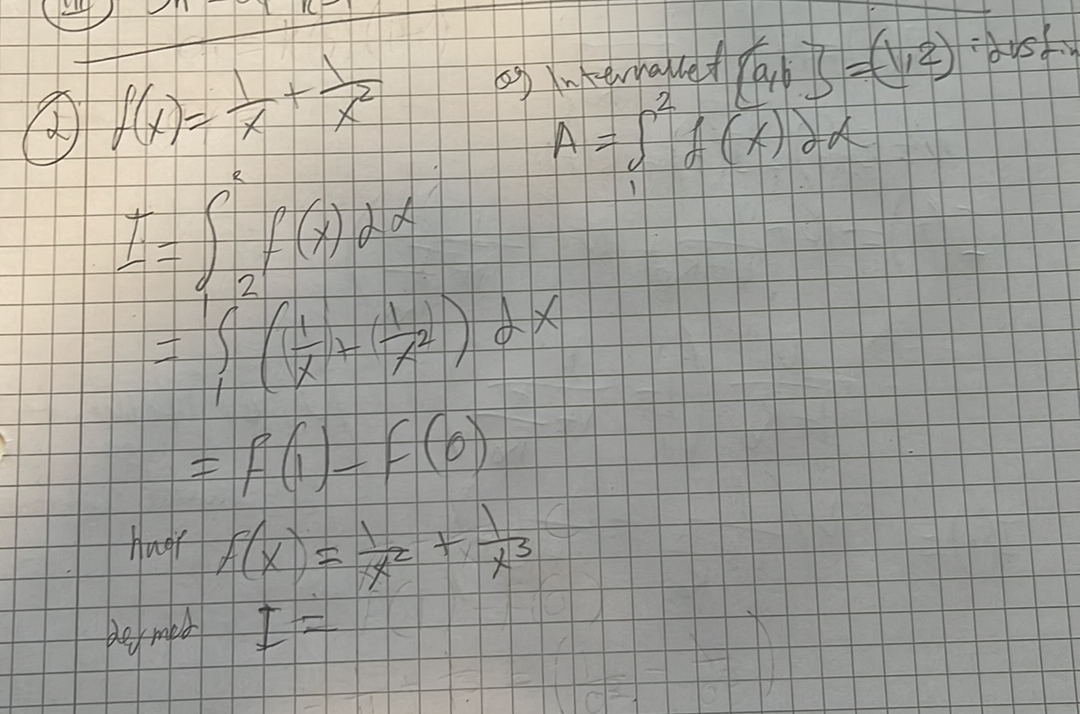 ② f(x) = 1/x + 1/x² og Intervallet [a,b] = (1,2)
A = ∫₁² f(x) dx
I = ∫₁² f(x) dx
= ∫₁² ((1/x) + (1/x²)) dx
= F(1) - F(0)
hvor F(x) = 1/x² + 1/x³
dermed I =